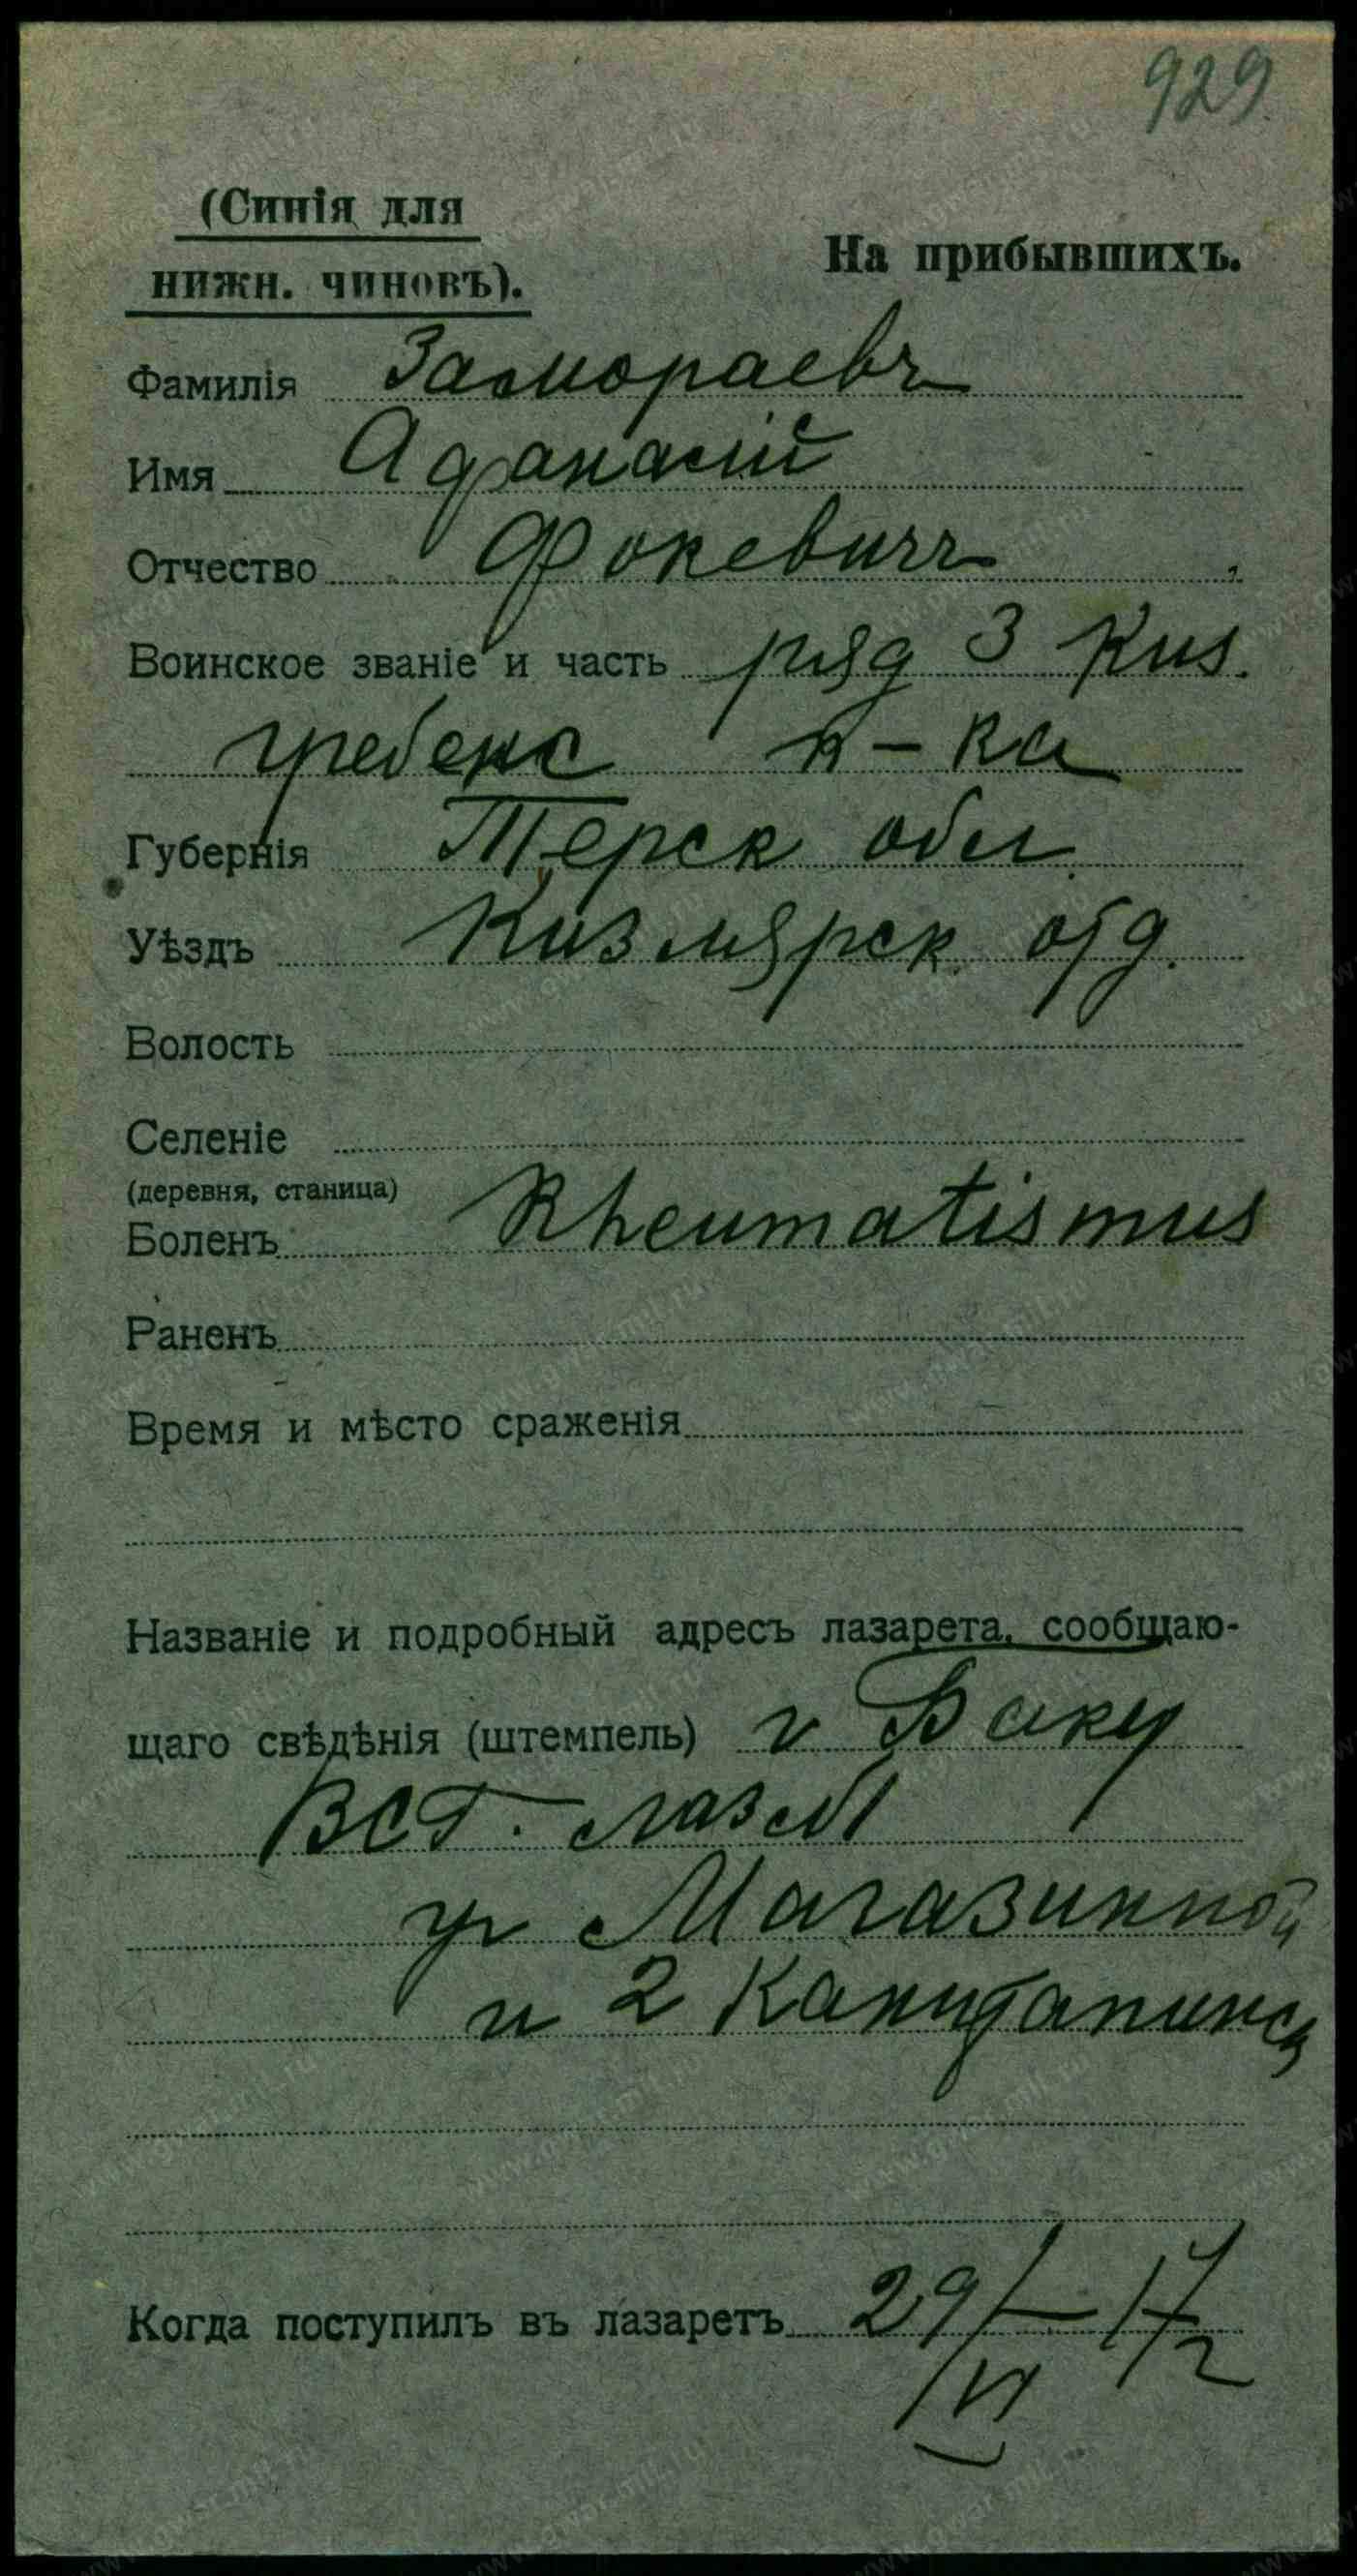 929
(Синія для
нижн. чиновъ).
На прибывшихъ.
Фамилія Замораевъ
Имя Афанасій
Отчество Фокевичъ
Воинское званіе и часть ряд 3 Киз.
гребенс п-ка
Губернія Терск обл
Уѣздъ Кизлярск. отд.
Волость
Селеніе
(деревня, станица)
Боленъ Rheumatismus
Раненъ
Время и мѣсто сраженія
Названіе и подробный адресъ лазарета, сообщаю-
щаго свѣдѣнія (штемпель) г Баку
ВСГ. лаз №1
уг Магазинной
и 2 Капитанинск
Когда поступилъ въ лазаретъ 29/VI - 17 г